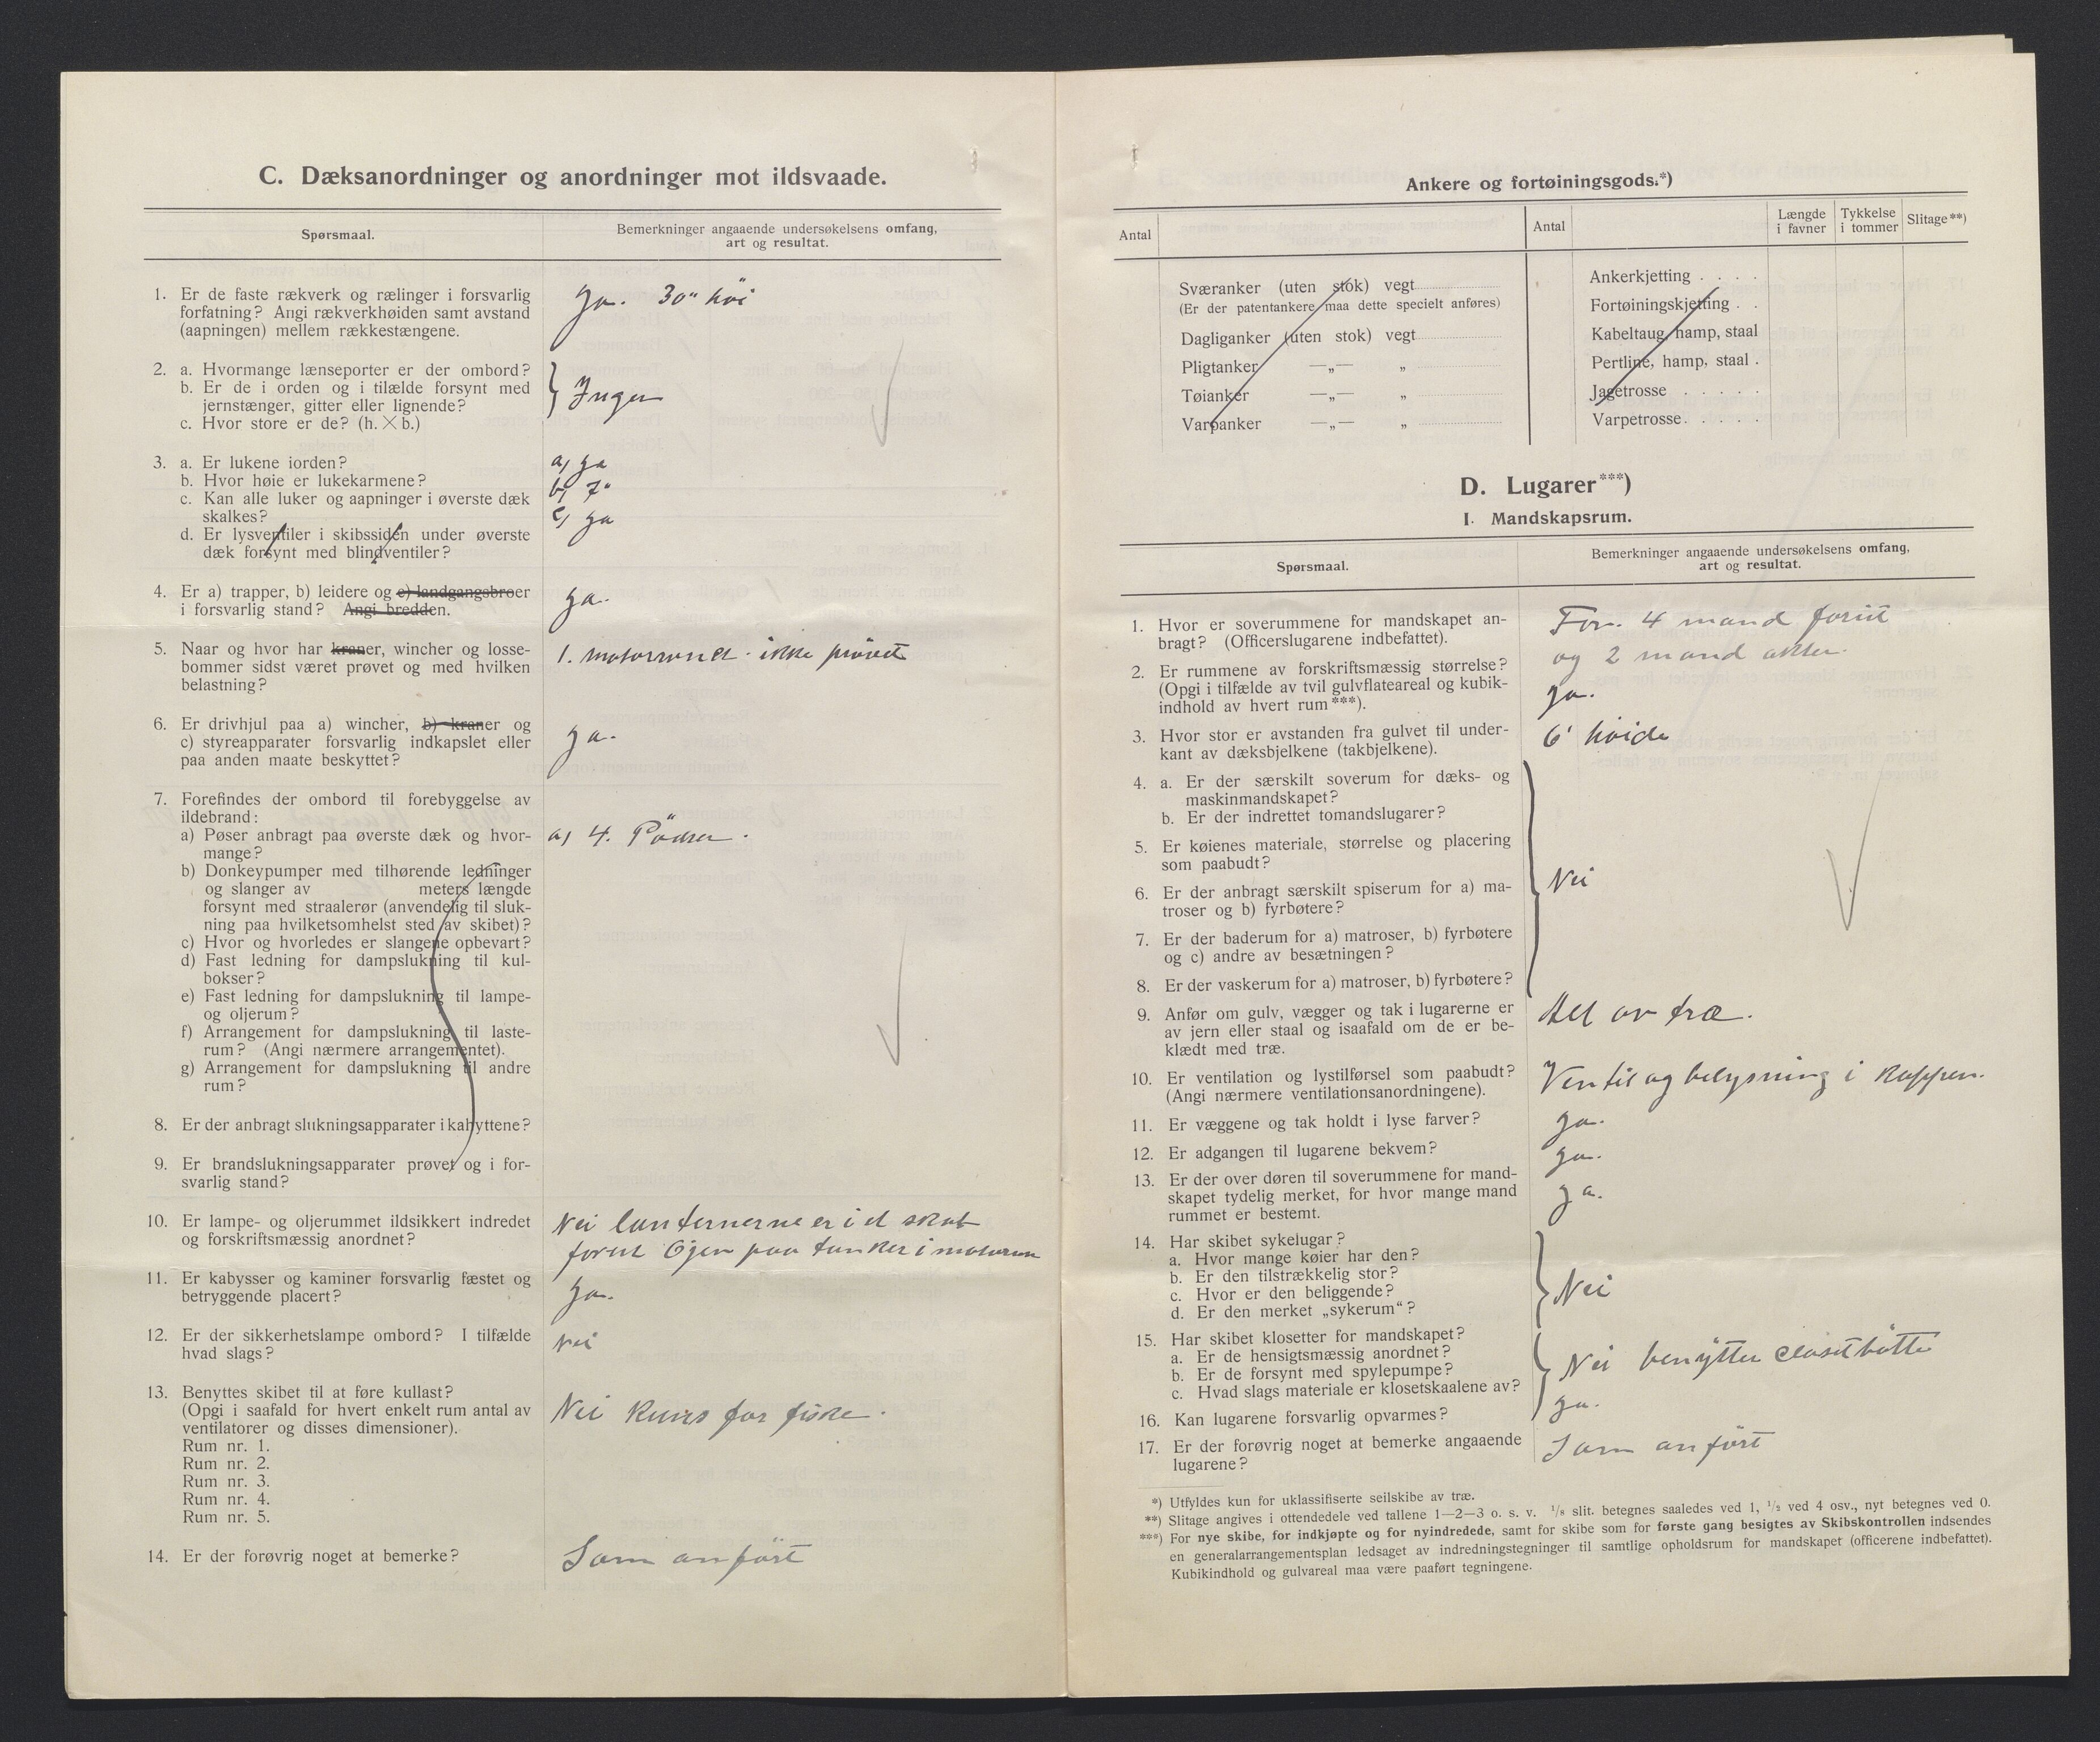 C. Dæksanordninger og anordninger mot ildsvaade.
Spørsmaal.
Bemerkninger angaaende undersøkelsens omfang,
art og resultat.
1. Er de faste rækverk og rælinger i forsvarlig
forfatning? Angi rækverkhøiden samt avstand
(aapningen) mellem rækkestængene.
Ja. 30" høi
2. a. Hvormange lænseporter er der ombord?
b. Er de i orden og i tilælde forsynt med
jernstænger, gitter eller lignende?
c. Hvor store er de? (h. × b.)
Ingen
3. a. Er lukene iorden?
a, ja
b. Hvor høie er lukekarmene?
b, 7"
c. Kan alle luker og aapninger i øverste dæk
skalkes?
c, ja
d. Er lysventiler i skibssiden under øverste
dæk forsynt med blindventiler?
4. Er a) trapper, b) leidere og c) landgangsbroer
i forsvarlig stand? Angi bredden.
ja.
5. Naar og hvor har kraner, wincher og losse-
bommer sidst været prøvet og med hvilken
belastning?
1. motorwinch. ikke prøvet
6. Er drivhjul paa a) wincher, b) kraner og
c) styreapparater forsvarlig indkapslet eller
paa anden maate beskyttet?
ja.
7. Forefindes der ombord til forebyggelse av
ildebrand:
a) Pøser anbragt paa øverste dæk og hvor-
mange?
a, 4. Pødser.
b) Donkeypumper med tilhørende ledninger
og slanger av meters længde
forsynt med straalerør (anvendelig til sluk-
ning paa hvilketsomhelst sted av skibet)?
c) Hvor og hvorledes er slangene opbevart?
d) Fast ledning for dampslukning til kul-
bokser?
e) Fast ledning for dampslukning til lampe-
og oljerum?
f) Arrangement for dampslukning til laste-
rum? (Angi nærmere arrangementet).
g) Arrangement for dampslukning til andre
rum?
8. Er der anbragt slukningsapparater i kahyttene?
9. Er brandslukningsapparater prøvet og i for-
svarlig stand?
10. Er lampe- og oljerummet ildsikkert indredet
og forskriftsmæssig anordnet?
Nei lanternerne er i et skab
forut Oljen paa tanker i motorrum
11. Er kabysser og kaminer forsvarlig fæstet og
betryggende placert?
Ja.
12. Er der sikkerhetslampe ombord? I tilfælde
hvad slags?
Nei
13. Benyttes skibet til at føre kullast?
(Opgi i saafald for hvert enkelt rum antal av
ventilatorer og disses dimensioner).
Rum nr. 1.
Rum nr. 2.
Rum nr. 3.
Rum nr. 4.
Rum nr. 5.
Nei Kuns for fiske.
14. Er der forøvrig noget at bemerke?
Som anført
Ankere og fortøiningsgods.*)
Antal
Antal
Længde
i favner
Tykkelse
i tommer
Slitage**)
Sværanker (uten stok) vegt
(Er der patentankere maa dette specielt anføres)
Dagliganker (uten stok) vegt
Pligtanker —„— „
Tøianker —„— „
Varpanker —„— „
Ankerkjetting . . . .
Fortøiningskjetting . .
Kabeltaug, hamp, staal
Pertline, hamp, staal .
Jagetrosse . . . . .
Varpetrosse. . . . .
D. Lugarer***)
I. Mandskapsrum.
Spørsmaal.
Bemerkninger angaaende undersøkelsens omfang,
art og resultat.
1. Hvor er soverummene for mandskapet an-
bragt? (Officerslugarene indbefattet).
For. 4 mand forut
og 2 mand akter.
2. Er rummene av forskriftsmæssig størrelse?
(Opgi i tilfælde av tvil gulvflateareal og kubik-
indhold av hvert rum***).
ja.
3. Hvor stor er avstanden fra gulvet til under-
kant av dæksbjelkene (takbjelkene).
6' høide
4. a. Er der særskilt soverum for dæks- og
maskinmandskapet?
b. Er der indrettet tomandslugarer?
5. Er køienes materiale, størrelse og placering
som paabudt?
6. Er der anbragt særskilt spiserum for a) ma-
troser og b) fyrbøtere?
Nei
7. Er der baderum for a) matroser, b) fyrbøtere
og c) andre av besætningen?
8. Er der vaskerum for a) matroser, b) fyrbøtere?
9. Anfør om gulv, vægger og tak i lugarerne er
av jern eller staal og isaafald om de er be-
klædt med træ.
Alt av træ.
10. Er ventilation og lystilførsel som paabudt?
(Angi nærmere ventilationsanordningene).
Ventil og belysning i Kappen.
11. Er væggene og tak holdt i lyse farver?
ja.
12. Er adgangen til lugarene bekvem?
ja.
13. Er der over døren til soverummene for mand-
skapet tydelig merket, for hvor mange mand
rummet er bestemt.
ja.
14. Har skibet sykelugar?
a. Hvor mange køier har den?
b. Er den tilstrækkelig stor?
c. Hvor er den beliggende?
d. Er den merket „sykerum“?
Nei
15. Har skibet klosetter for mandskapet?
a. Er de hensigtsmæssig anordnet?
b. Er de forsynt med spylepumpe?
c. Hvad slags materiale er klosetskaalene av?
Nei benytter closetbøtte
16. Kan lugarene forsvarlig opvarmes?
ja.
17. Er der forøvrig noget at bemerke angaaende
lugarene?
Som anført
*) Utfyldes kun for uklassifiserte seilskibe av træ.
**) Slitage angives i ottendedele ved tallene 1—2—3 o. s. v. 1/8 slit. betegnes saaledes ved 1, 1/2 ved 4 osv., nyt betegnes ved 0.
***) For nye skibe, for indkjøpte og for nyindredede, samt for skibe som for første gang besigtes av Skibskontrollen indsendes
en generalarrangementsplan ledsaget av indredningstegninger til samtlige opholdsrum for mandskapet (officerene indbefattet).
Kubikindhold og gulvareal maa være paaført tegningene.